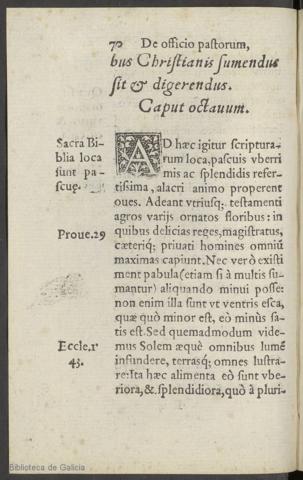 70 De officio pastorum,
bus Christianis sumendus
sit & digerendus.
Caput octauum.
Sacra Bi-
blia loca
sunt pa-
scuę.
AD hæc igitur scriptura-
rum loca, pascuis vberri
mis ac splendidis refer-
tissima, alacri animo properent
oues. Adeant vtriusq; testamenti
agros varijs ornatos floribus: in
Proue.29
quibus delicias reges, magistratus,
cæteriq; priuati homines omniũ
maximas capiunt. Nec verò existi
ment pabula (etiam si à multis su-
mantur) aliquando minui posse:
non enim illa sunt vt ventris esca,
quæ quò minor est, eò minùs sa-
tis est. Sed quemadmodum vide-
Eccle.1
43.
mus Solem æquè omnibus lumẽ
infundere, terrasq; omnes lustra-
re: Ita hæc alimenta eò sunt vbe-
riora, & splendidiora, quò à pluri-
Biblioteca de Galicia